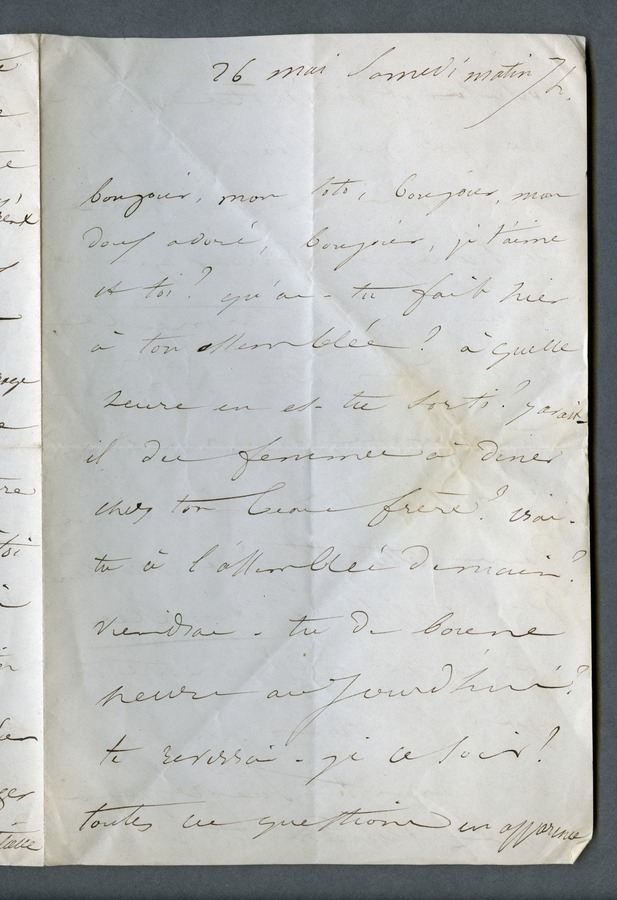 26 mai Samedi matin 7h.
bonjour, mon toto, bonjour, mon
doux adoré, bonjour, je t'aime
et toi? qu'as-tu fait hier
à ton assemblée? à quelle
heure en es-tu sorti? y avait-
il des femmes à diner
chez ton beau frère? iras-
tu à l'assemblée demain?
viendras-tu de bonne
heure aujourd'hui?
te reverrai-je ce soir?
toutes ces questions en apparence